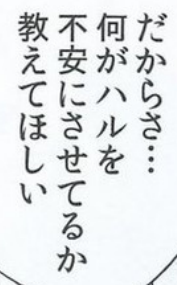 だからさ…
何がハルを
不安にさせてるか
教えてほしい